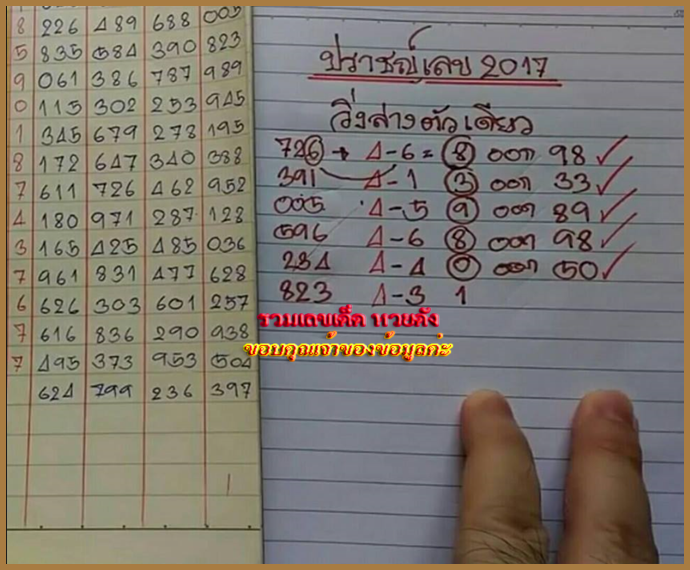 8 226 489 688 005
5 835 584 390 823
9 061 386 787 989
0 115 302 253 945
1 345 679 278 195
8 172 647 340 388
7 611 726 462 952
4 180 971 287 128
3 165 425 485 036
7 961 831 477 628
6 626 303 601 257
7 616 836 290 938
7 495 373 953 504
624 799 236 397
1
ปราชญ์เลข 2017
วิ่งล่างตัวเดียว
726 → 4-6 = 8 ออก 98 ✓
391 4-1 3 ออก 33 ✓
005 4-5 9 ออก 89 ✓
596 4-6 8 ออก 98 ✓
234 4-4 0 ออก 50 ✓
823 4-3 1
รวมเลขเด็ด หวยดัง
ขอบคุณเจ้าของข้อมูลค่ะ